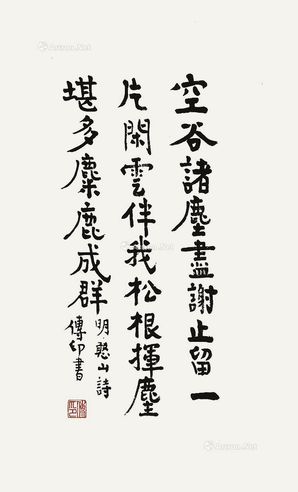 空谷諸塵盡謝止留一
片閑雲伴我松根揮麈
堪多麋鹿成群
明·憨山詩
傳印書
Artron.Net
Artron.Net
Artron.Net